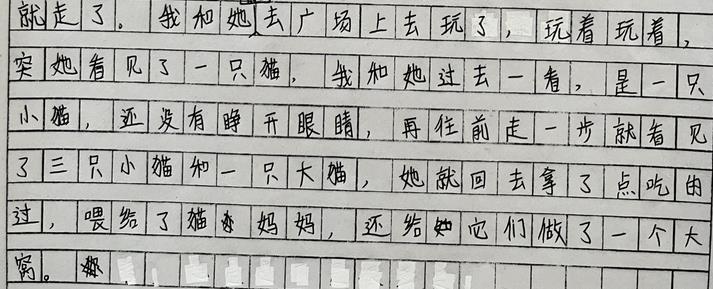 就走了。我和她去广场上去玩了，玩着玩着，
突她看见了一只猫，我和她过去一看，是一只
小猫，还没有睁开眼睛，再往前走一步就看见
了三只小猫和一只大猫，她就回去拿了点吃的
过，喂给了猫妈妈，还给它们做了一个大
窝。